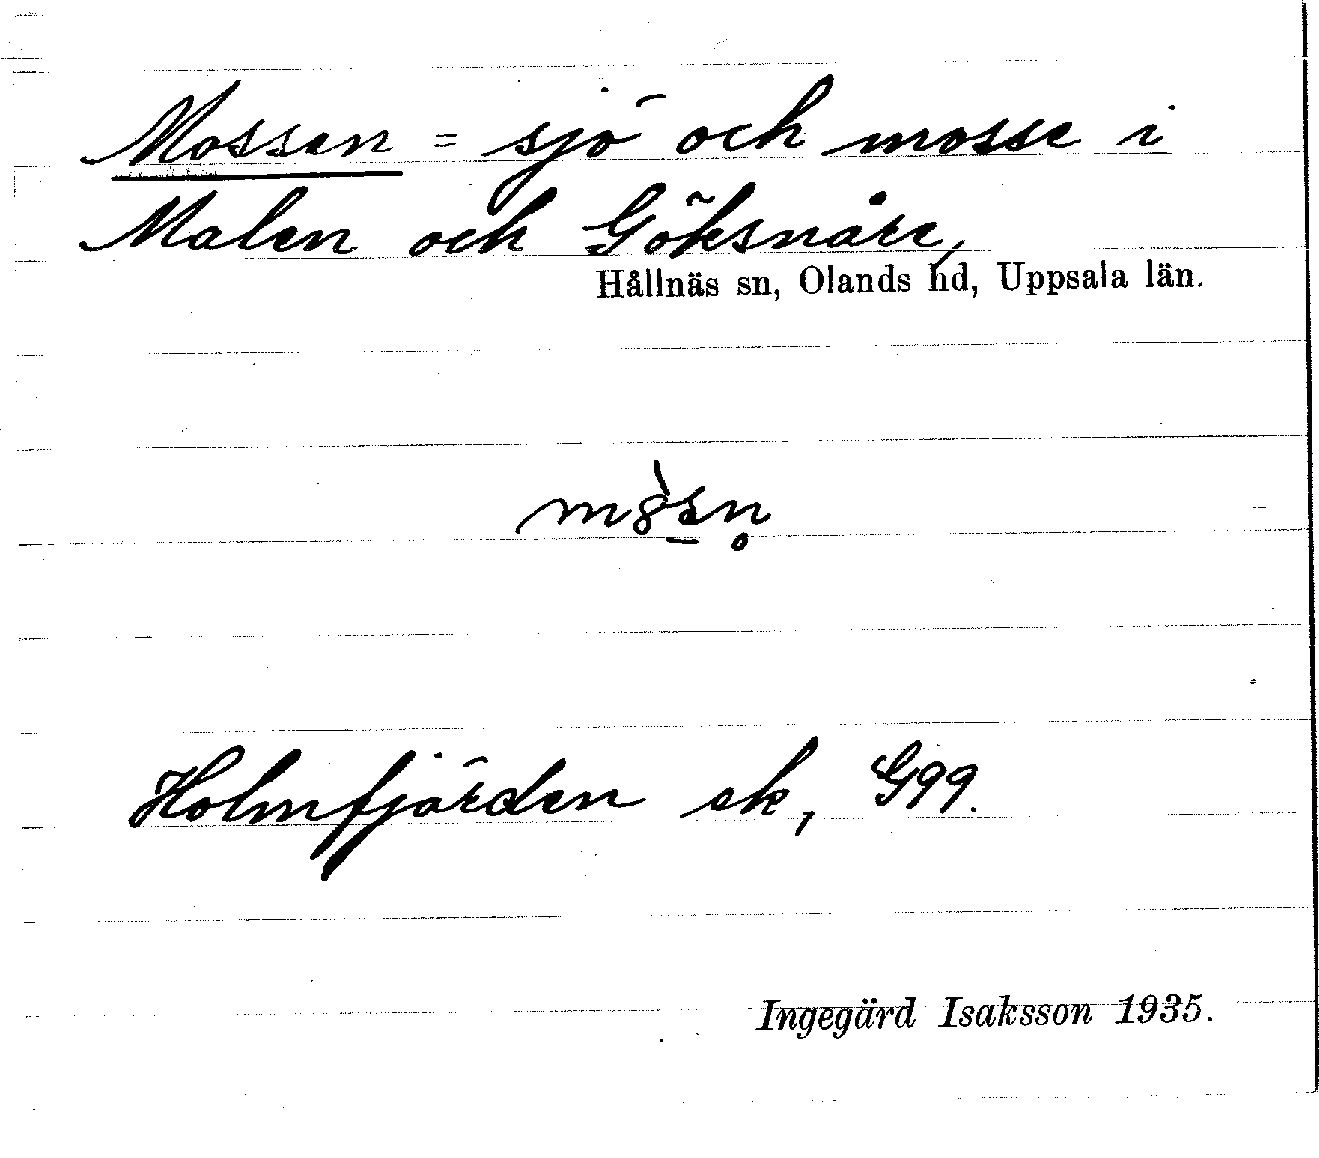 Mossen = sjö och mosse i
Malen och Göksnåre,
Hållnäs sn, Olands hd, Uppsala län.
Holmfjärden ek, G99.
Ingegärd Isaksson 1935.